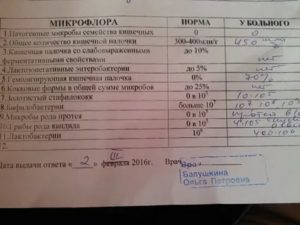 МИКРОФЛОРА НОРМА У БОЛЬНОГО
1.Патогенные микробы семейства кишечных 0 0
2.Общее количество кишечной палочки 300-400млн/г 450
3.Кишечная палочка со слабовыраженными до 10%
ферментативными свойствами нет
4.Лактозонегативные энтеробактерии до 5% нет
5.Гемолизирующая кишечная палочка 0% 70%
6.Кокковые формы в общей сумме микробов до 25% нет
7.Золотистый стафилококк 0 в 10³
8.Бифидобактерии больше
9.Микробы рода протея 0 в 10³
10.Д рибы рода кандида 0 в 10³
11.Лактобактерии 10⁶
12.
Дата выдачи ответа « 2 » февраля 2016г. Врач
Врач
Балушкина
Ольга Петровна